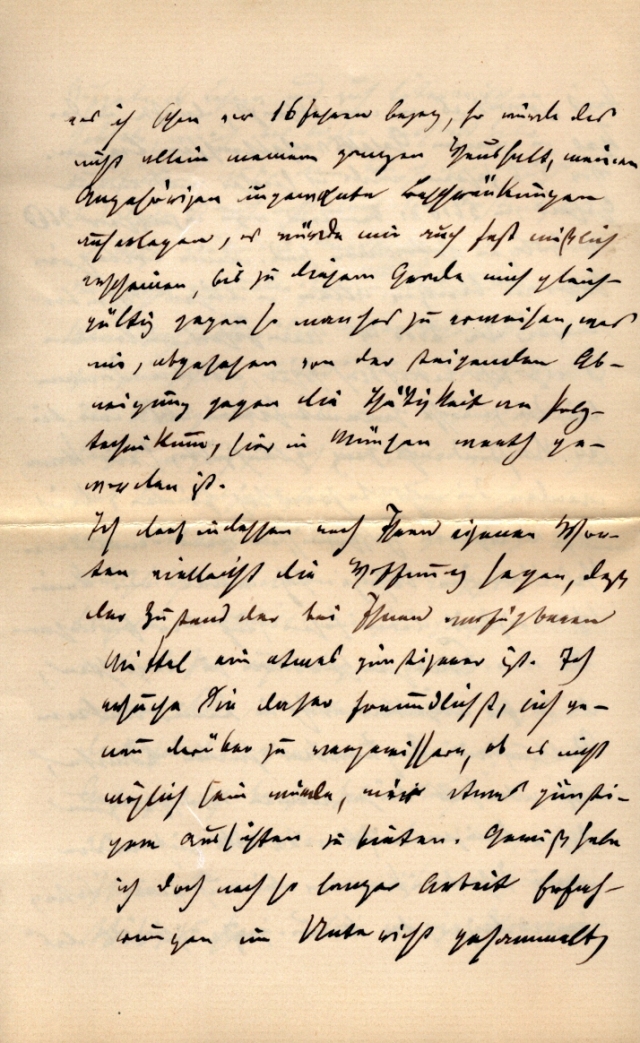 was ich schon vor 16 Jahren bezog, so würde das
nicht allein meinem ganzen Haushalt, meinen
Angehörigen ungewohnte Beschränkungen
auferlegen, es würde mir auch fast mißlich
erscheinen, bis zu diesem Grade mich gleich-
gültig gegen so manches zu erweisen, was
mir, abgesehen von der steigenden Ab-
neigung gegen die Thätigkeit am Poly-
technikum, hier in München werth ge-
worden ist.
Ich darf indessen nach Ihren eigenen Wor-
ten vielleicht die Hoffnung hegen, daß
der Zustand der bei Ihnen verfügbaren
Mittel ein etwas günstigerer ist. Ich
ersuche Sie daher freundlichst, sich ge-
nau darüber zu vergewissern, ob es nicht
möglich sein würde, mir etwas günsti-
gere Aussichten zu bieten. Gewiß habe
ich doch nach so langer Arbeit Erfah-
rungen im Unterricht gesammelt,